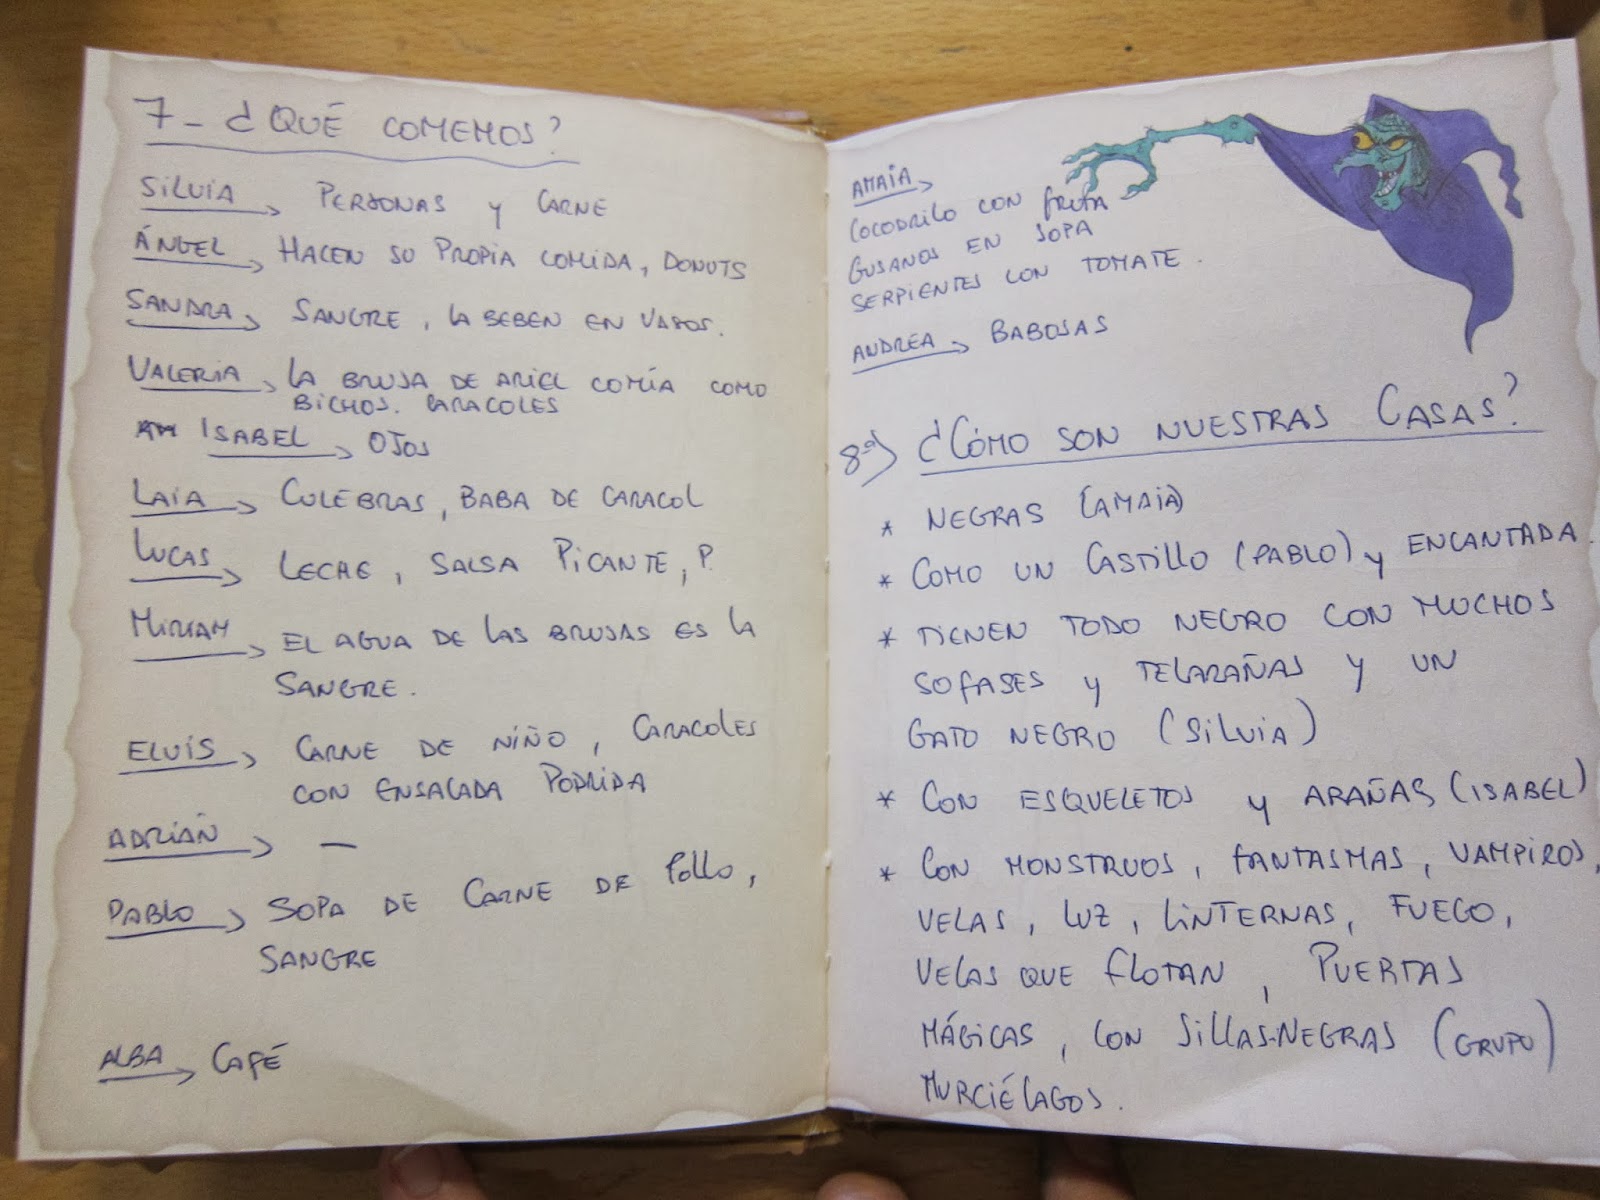 7- ¿QUÉ COMEMOS?
SILVIA → PERSONAS y CARNE
ÁNGEL → HACEN SU PROPIA COMIDA, DONUTS
SANDRA → SANGRE, LA BEBEN EN VASOS.
VALERIA → LA BRUJA DE ARIEL COMÍA COMO
BICHOS. CARACOLES
ISABEL → OJOS
LAIA → CULEBRAS, BABA DE CARACOL
LUCAS → LECHE, SALSA PICANTE, P.
MIRIAM → EL AGUA DE LAS BRUJAS ES LA
SANGRE.
ELVIS → CARNE DE NIÑO, CARACOLES
CON ENSALADA PODRIDA
ADRIÁN → —
PABLO → SOPA DE CARNE DE POLLO,
SANGRE
ALBA → CAFÉ
AMAIA →
COCODRILO CON FRUTA
GUSANOS EN SOPA
SERPIENTES CON TOMATE.
ANDREA → BABOSAS
8ª) ¿CÓMO SON NUESTRAS CASAS?
* NEGRAS (AMAIA)
* COMO UN CASTILLO (PABLO) y ENCANTADA.
* TIENEN TODO NEGRO CON MUCHOS
SOFASES y TELARAÑAS Y UN
GATO NEGRO (SILVIA)
* CON ESQUELETOS y ARAÑAS (ISABEL)
* CON MONSTRUOS, FANTASMAS, VAMPIROS,
VELAS, LUZ, LINTERNAS, FUEGO,
VELAS QUE FLOTAN, PUERTAS
MÁGICAS, CON SILLAS-NEGRAS (GRUPO)
MURCIÉLAGOS.